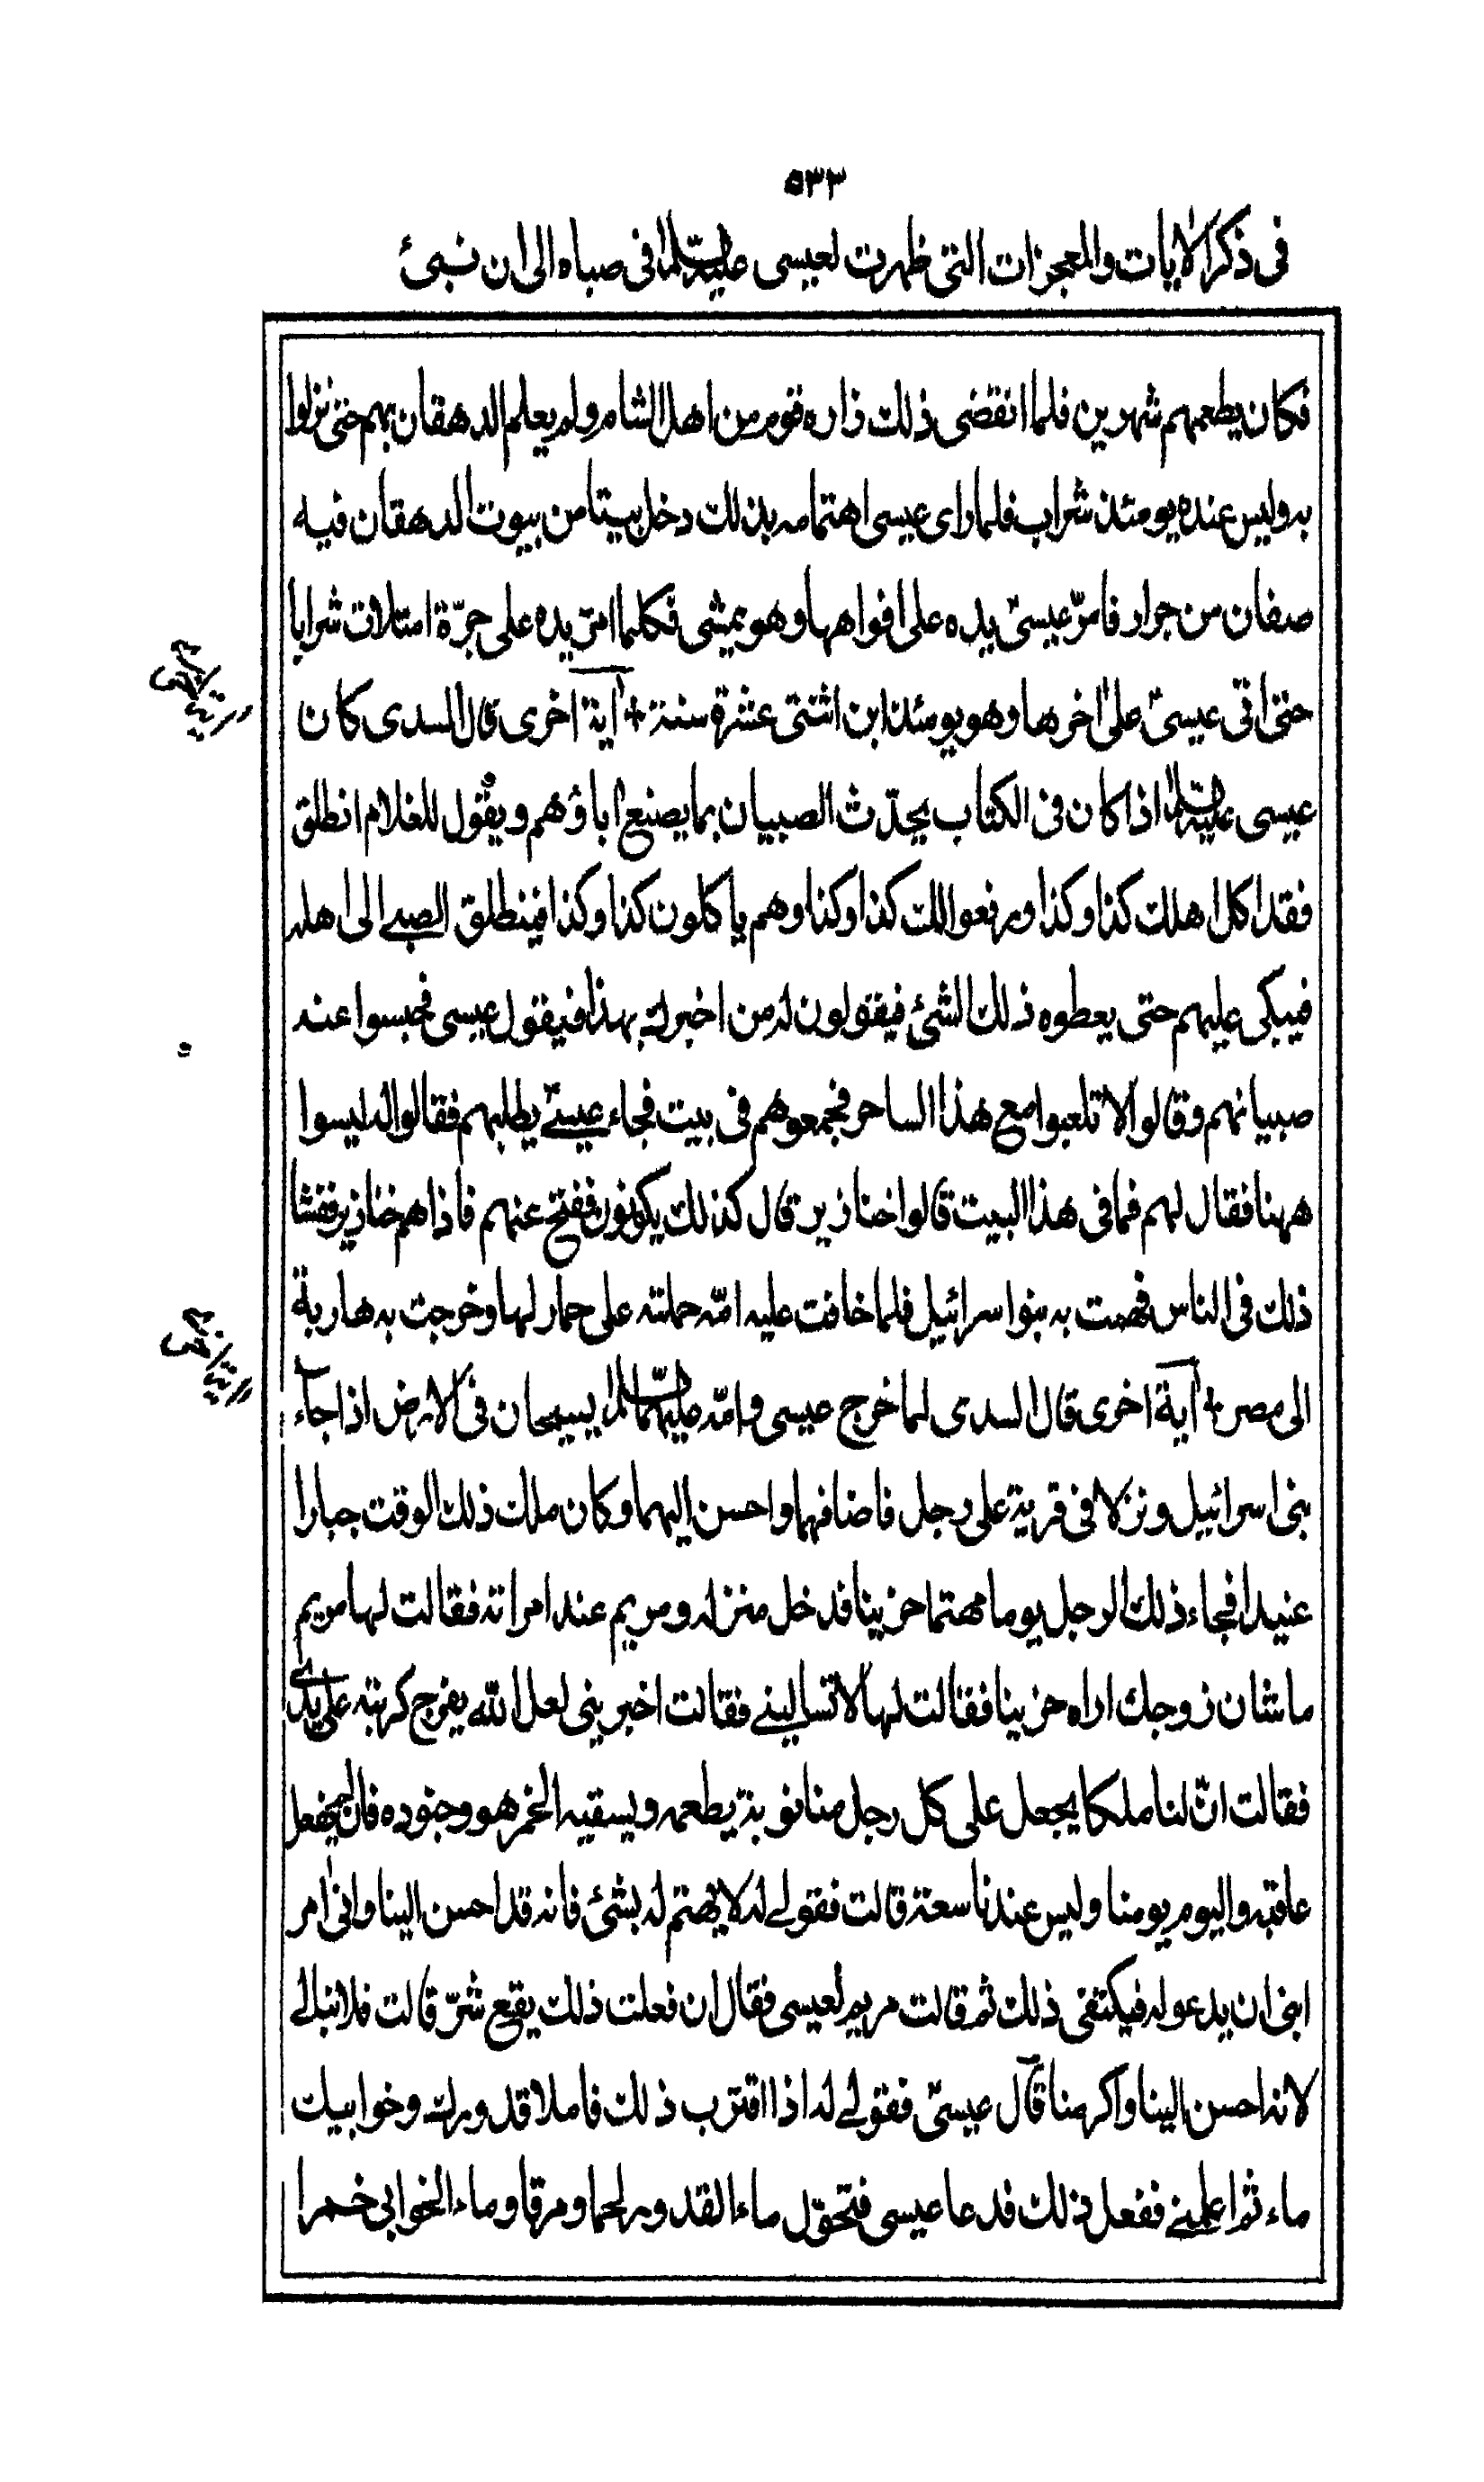 ٥٣٣
فى ذكر الايات والمعجزات التى ظهرت لعيسى عليه السلام فى صباه الى ان نبىء
فكان يطعمهم شهرين فلما انقضى ذلك زاره قوم من اهل الشام ولم يعلم الدهقان بهم حتى نزلوا
به وليس عنده يومئذ شراب فلما راى عيسى اهتمامه بذلك دخل بيتا من بيوت الدهقان فيه
صفان من جرار فامرّ عيسىٰ يده على افواهها وهو يمشى فكلما امرّ يده على جرّة امتلات شرابا
حتى اتى عيسىٰ على اٰخرها وهو يومئذ ابن اثنتى عشرة سنة + اٰية اخرى قال السدى كان
عيسى عليه السلام اذا كان فى الكتاب يحدّث الصبيان بما يصنع اٰباؤهم ويقول للغلام انطلق
فقد اكل اهلك كذا وكذا ورفعوا لك كذا وكذا وهم ياكلون كذا وكذا فينطلق الصبے الى اهله
فيبكى عليهم حتى يعطوه ذلك الشئ فيقولون له من اخبرك بهذا فيقول عيسى فحبسوا عنه
صبيانهم وقالوا لا تلعبوا مع هذا الساحر فجمعوهم فى بيت فجاء عيسےٰ يطلبهم فقالوا له ليسوا
ههنا فقال لهم فما فى هذا البيت قالوا خنازير قال كذلك يكونون ففتح عنهم فاذا هم خنازير ففشا
ذلك فى الناس فهمت به بنوا سرائيل فلما خافت عليه امّه حملته على حمار لها وخرجت به هاربة
الى مصر + آية اخرى قال السدى لما خرج عيسى وامّه عليهما السلام يسيحان فى الارض اذا جآء
بنى اسرائيل ونزلا فى قرية على رجل فاضافهما واحسن اليهما وكان ملك ذلك الوقت جبارا
عنيدا فجاء ذلك الرجل يوما مهتما حزينا فدخل منزله ومريم عند امراته فقالت لها مريم
ما شان زوجك اراه حزينا فقالت لها لا تسالينے فقالت اخبرينى لعل الله يفرج كربته على يدى
فقالت انّ لنا ملكا يجعل على كل رجل منا نوبة يطعمه ويسقيه الخمر هو وجنوده فان لم يفعل
عاقبه واليوم يومنا وليس عندنا سعة قالت فقولے له لا يهتم له بشئ فانه قد احسن الينا وانى اٰمر
ابنى ان يدعو له فيكتفى ذلك ثم قالت مريم لعيسى فقال ان فعلت ذلك يقع شرّ قالت فلا تبالے
لانه احسن الينا واكرمنا قال عيسىٰ فقولے له اذا اقترب ذلك فاملا قدورك وخوابيك
ماء ثم اعلمنے ففعل ذلك فدعا عيسى فتحوّل ماء القدور لحما ومرقا وماء الخوابى خمرا